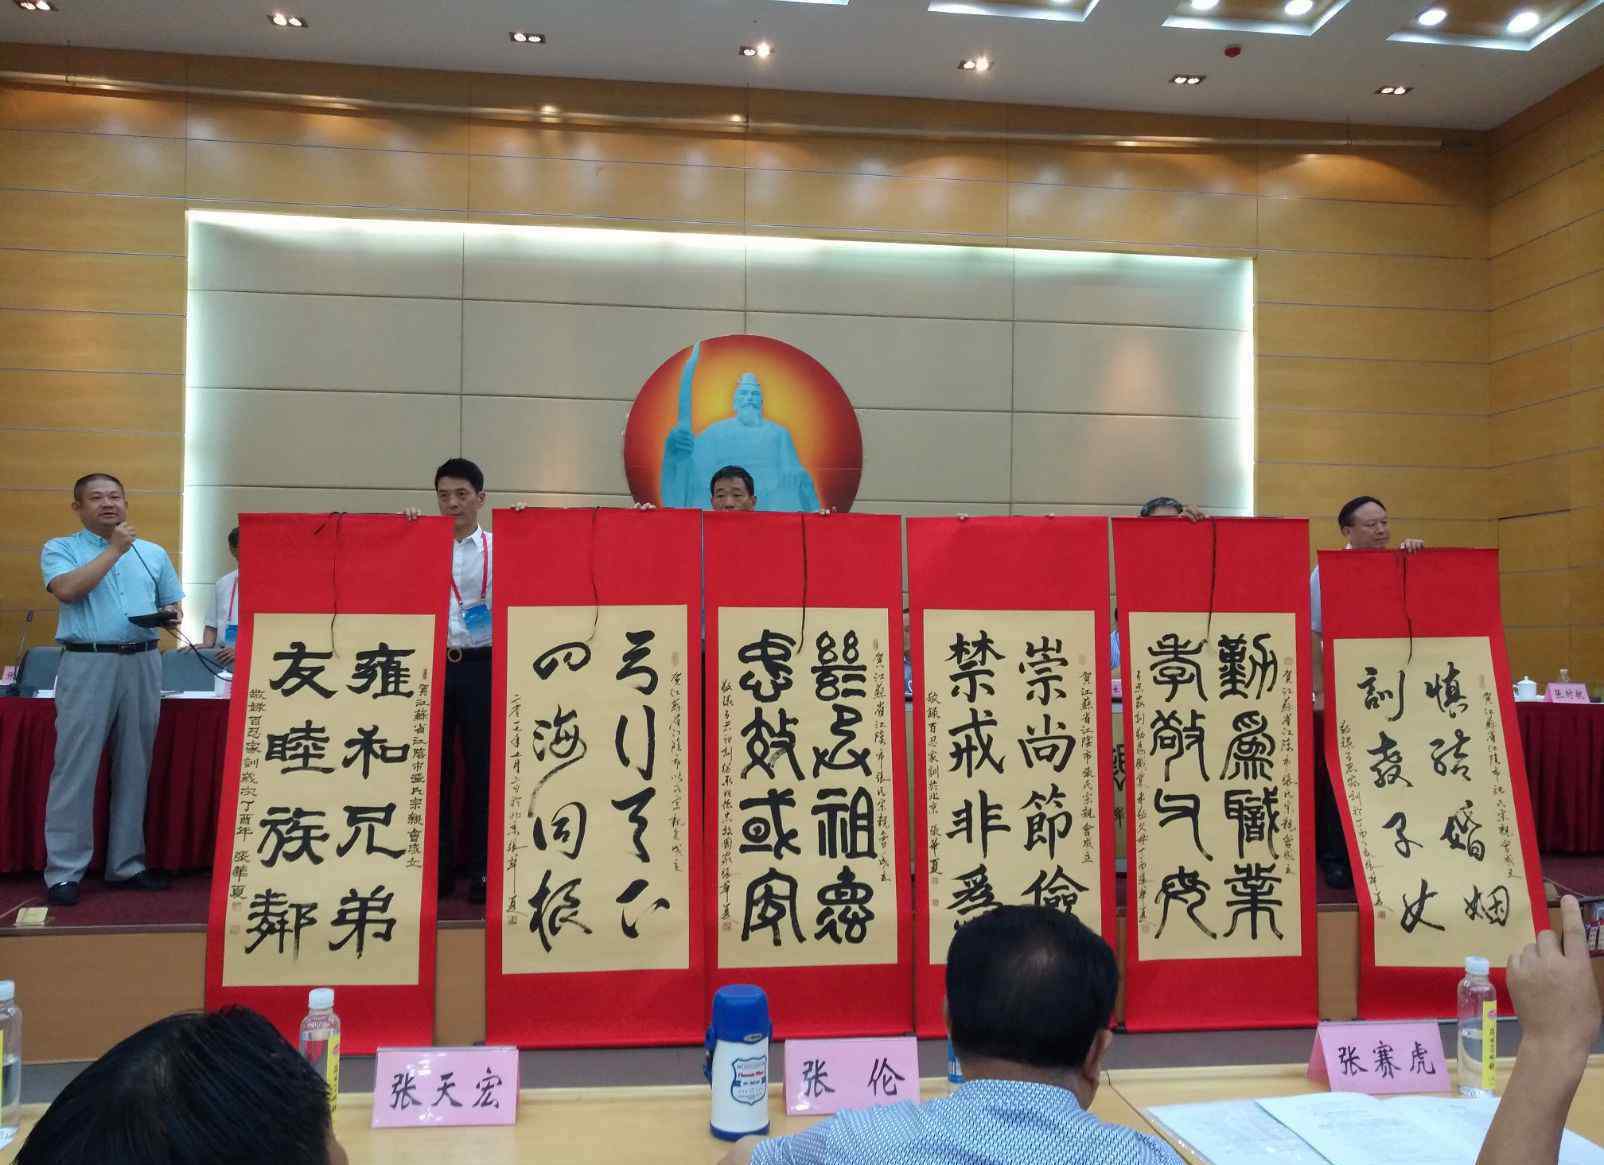 賀江蘇省江陰市張氏宗親會成立
雍和兄弟
友睦族鄰
敬錄百忍家訓歲次丁酉年 張華夏
弓行天下
四海同根
賀江蘇省江陰市張氏宗親會成立
繼承祖德
忠效或家
賀江蘇省江陰市張氏宗親會成立
崇尚節儉
禁戒非為
敬錄百忍家訓於北京 張華夏
賀江蘇省江陰市張氏宗親會成立
勤為職業
孝敬父母
賀江蘇省江陰市張氏宗親會成立
慎結婚姻
訓教子女
张天宏
张伦
张赛虎